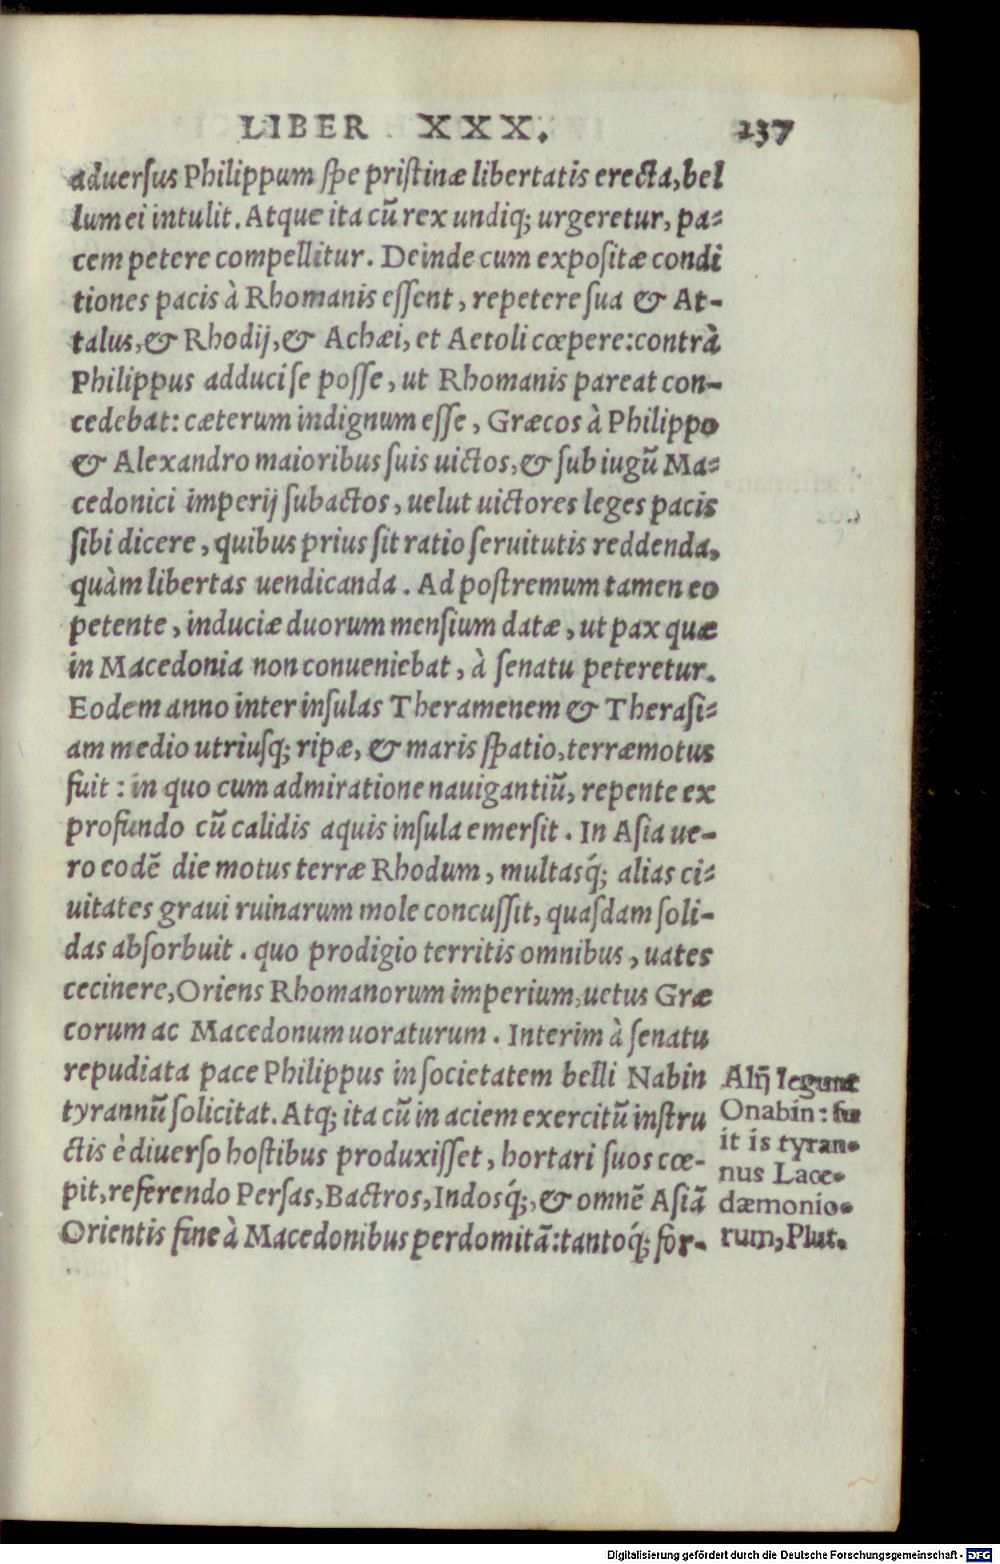 LIBER XXX. 237
aduersus Philippum spe pristinæ libertatis erecta, bel
lum ei intulit. Atque ita cũ rex undiq; urgeretur, pa-
cem petere compellitur. Deinde cum expositæ condi
tiones pacis à Rhomanis essent, repetere sua & At-
talus, & Rhodij, & Achæi, et Aetoli cœpere: contrà
Philippus adduci se posse, ut Rhomanis pareat con-
cedebat: cæterum indignum esse, Græcos à Philippo
& Alexandro maioribus suis uictos, & sub iugũ Ma-
cedonici imperij subactos, uelut uictores leges pacis
sibi dicere, quibus prius sit ratio seruitutis reddenda,
quàm libertas uendicanda. Ad postremum tamen eo
petente, induciæ duorum mensium datæ, ut pax quæ
in Macedonia non conueniebat, à senatu peteretur.
Eodem anno inter insulas Theramenem & Therasi-
am medio utriusq; ripæ, & maris spatio, terræmotus
fuit: in quo cum admiratione nauigantiũ, repente ex
profundo cũ calidis aquis insula emersit. In Asia ue-
ro eodẽ die motus terræ Rhodum, multasq́; alias ci-
uitates graui ruinarum mole concussit, quasdam soli-
das absorbuit. quo prodigio territis omnibus, uates
cecinere, Oriens Rhomanorum imperium, uetus Græ
corum ac Macedonum uoraturum. Interim à senatu
repudiata pace Philippus in societatem belli Nabin
tyrannũ solicitat. Atq; ita cũ in aciem exercitũ instru
ctis è diuerso hostibus produxisset, hortari suos cœ-
pit, referendo Persas, Bactros, Indosq́;, & omnẽ Asiã
Orientis fine à Macedonibus perdomitã: tantoq́; for-
Alij legunt
Onabin: fu
it is tyran-
nus Lace-
dæmonio-
rum, Plut.
Digitalisierung gefördert durch die Deutsche Forschungsgemeinschaft - DFG